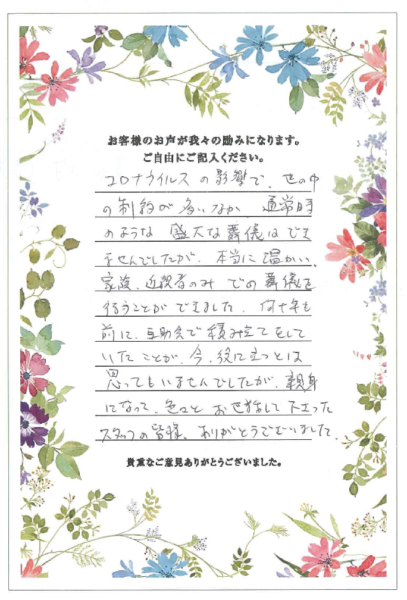 お客様のお声が我々の励みになります。
ご自由にご記入ください。
コロナウイルスの影響で、世の中
の制約が多いなか、通常時
のような盛大な葬儀はでき
ませんでしたが、本当に温かい、
家族、近親者のみでの葬儀を
行うことができました。何十年も
前に、互助会で積み立てをして
いたことが、今、役に立つとは
思ってもいませんでしたが、親身
になって、色々とお世話して下さった
スタッフの皆様。ありがとうございました
貴重なご意見ありがとうございました。